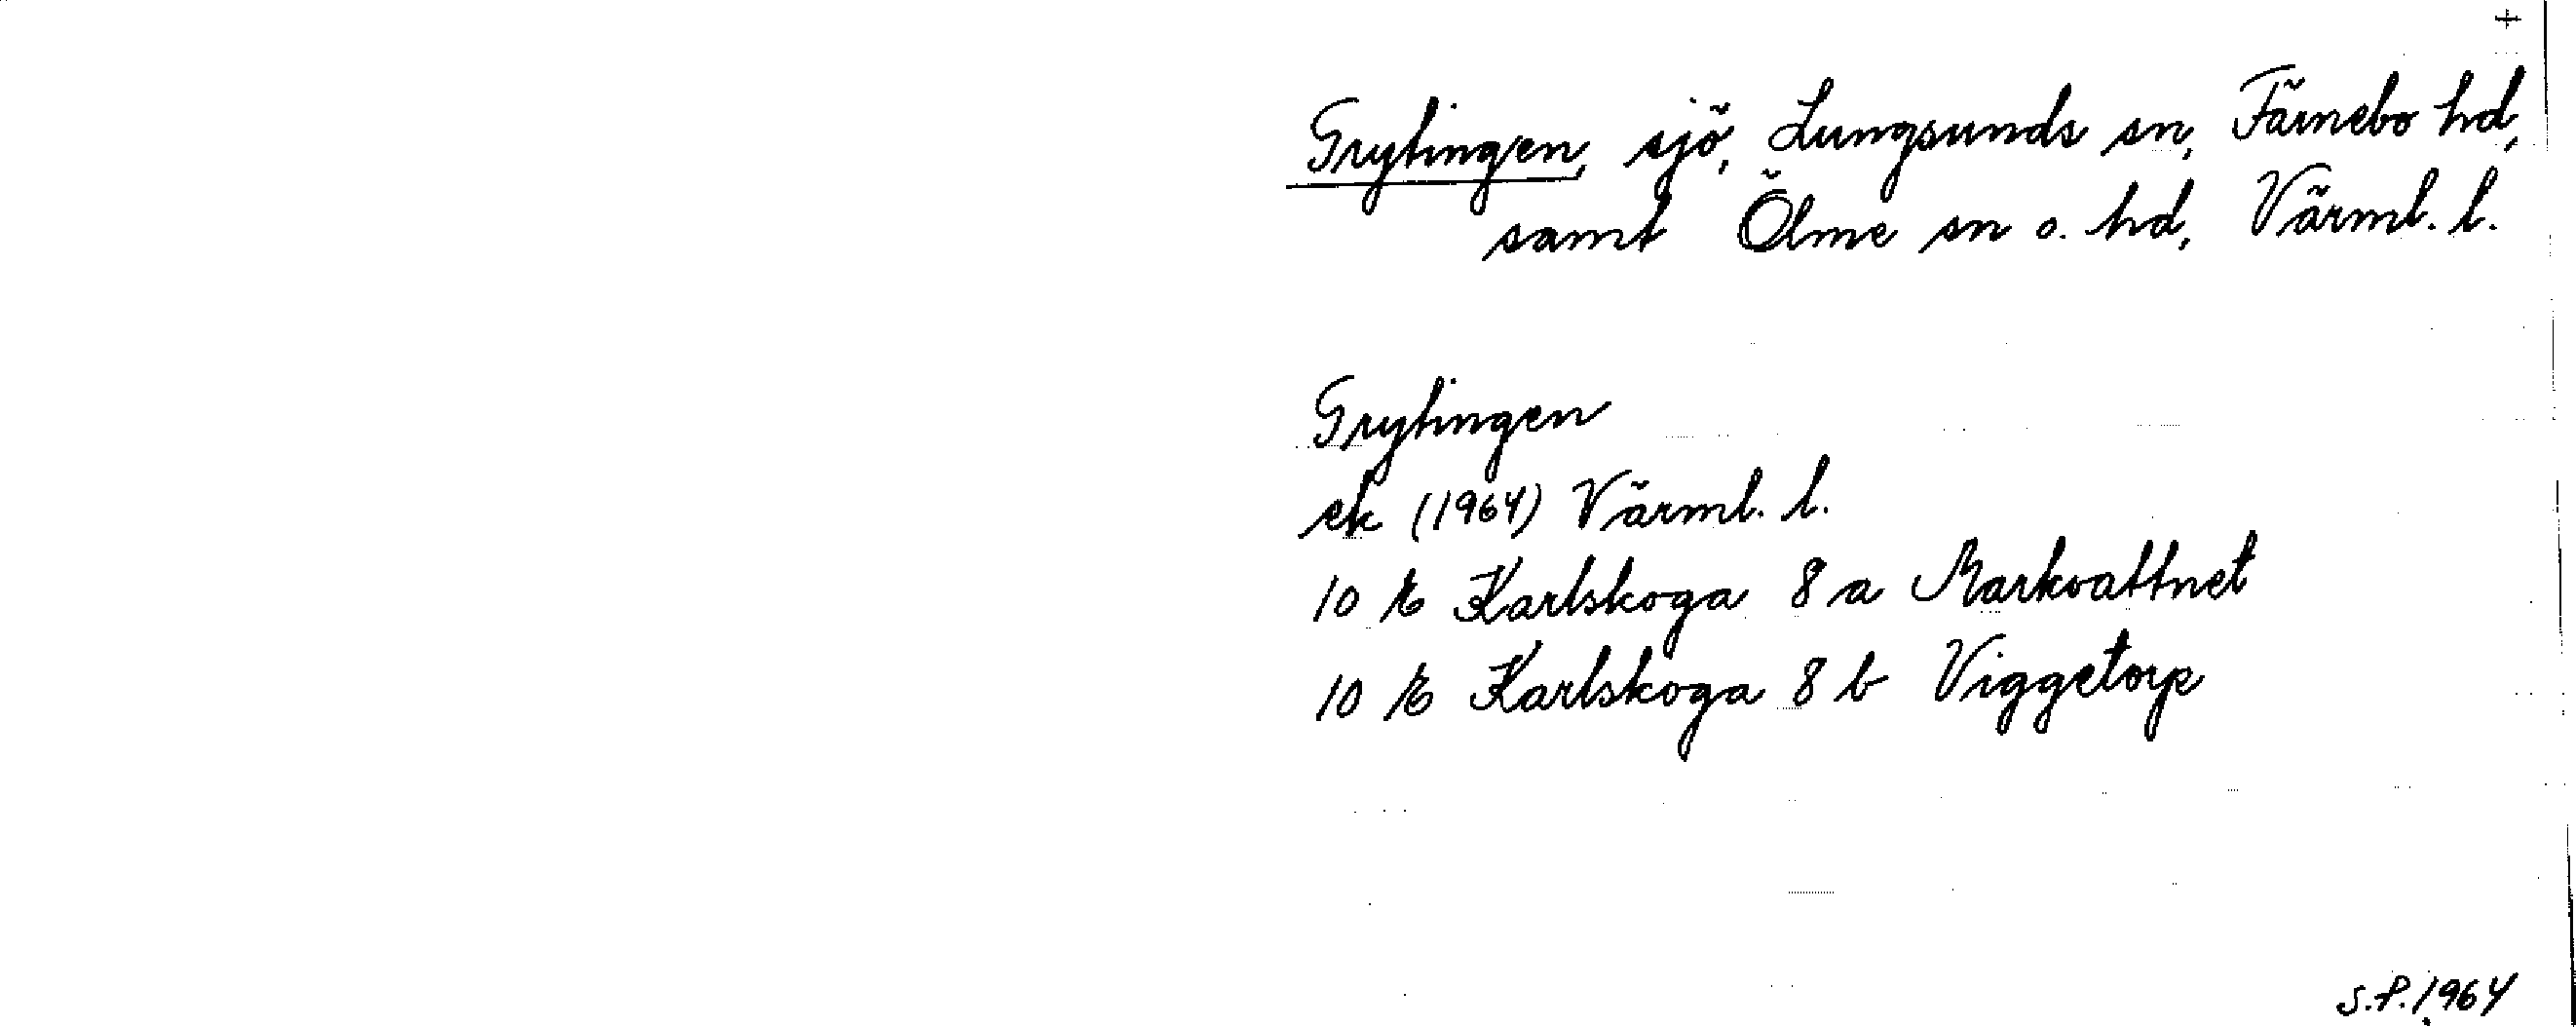 +
Grytingen, sjö, Lungsunds sn, Färnebo hd,
samt Ölme sn o. hd, Värml. l.
Grytingen
ek (1964) Värml. l.
10 E Karlskoga 8 a Markvattnet
10 E Karlskoga 8 b Viggetorp
S.P. 1964